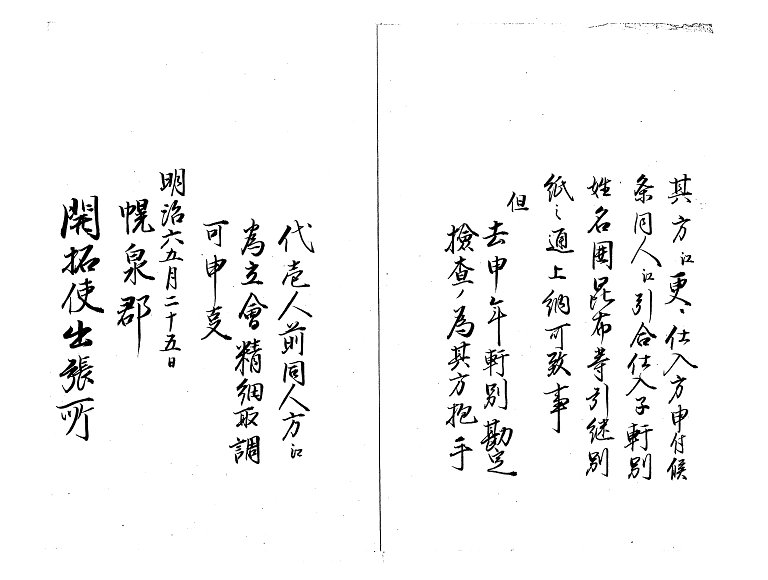 其方江更ニ仕入方申付候
条同人江引合仕入子軒別
姓名圍昆布等引継別
紙之通上納可致事
但
去申年軒別勘定
撿査ノ為其方抱手
代壱人前同人方江
為立會精細取調
可申叓
明治六五月二十五日
幌泉郡
開拓使出張所